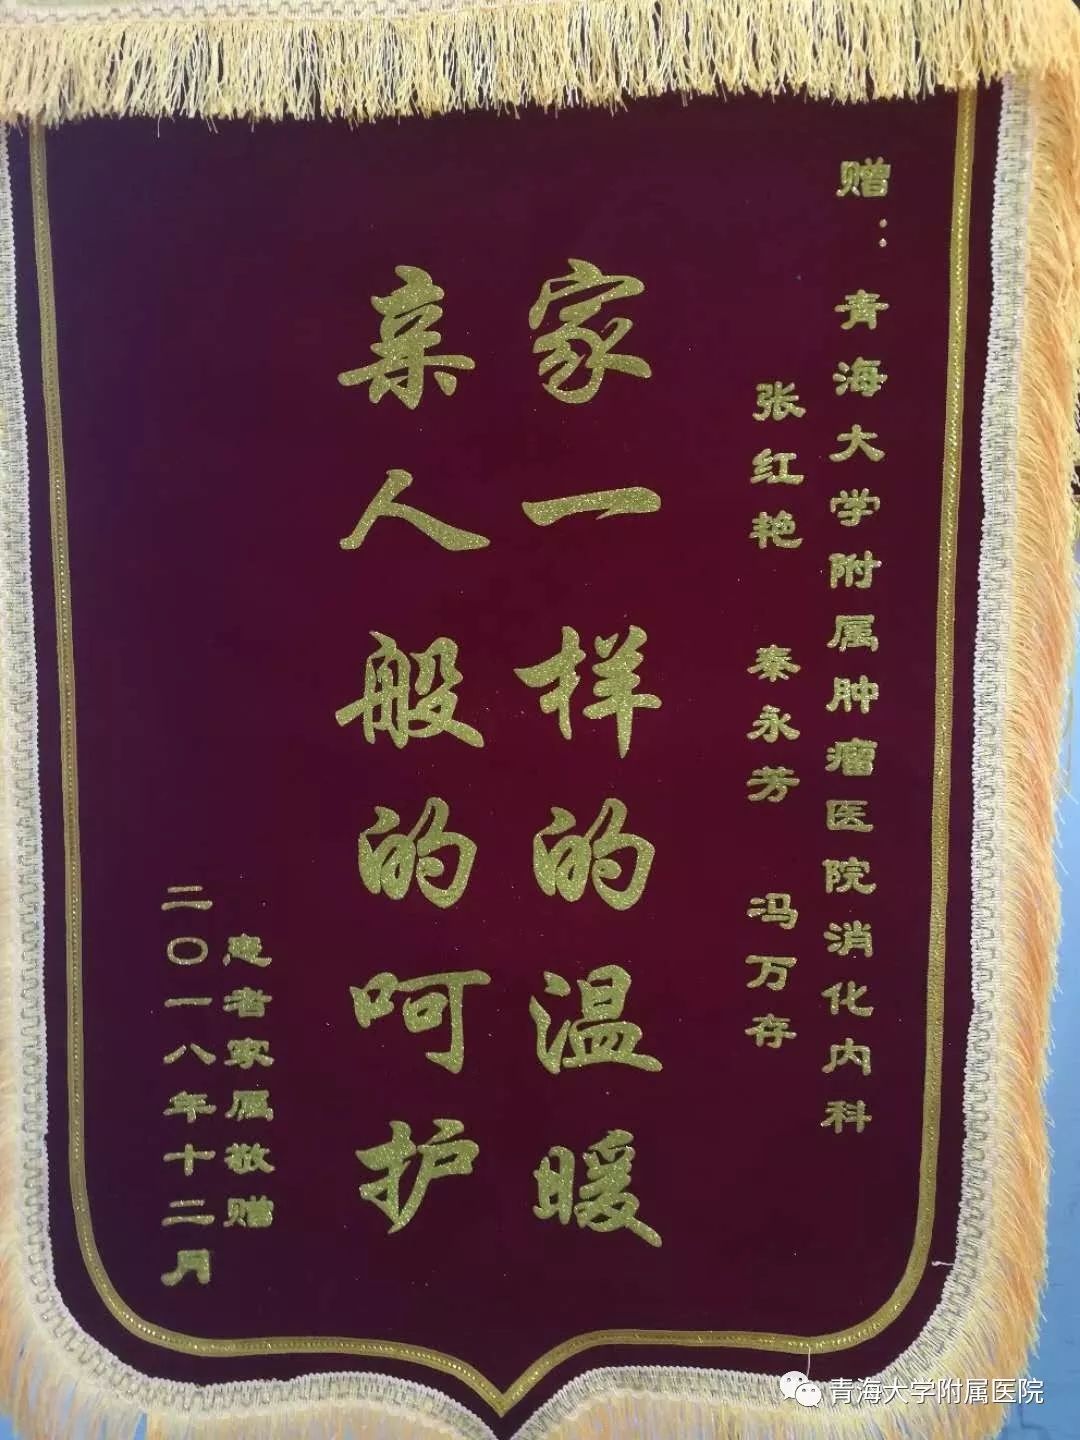 赠：青海大学附属肿瘤医院消化内科
张红艳 秦永芳 冯万存
家一样的温暖
亲人般的呵护
患者家属敬赠
二〇一八年十二月
青海大学附属医院